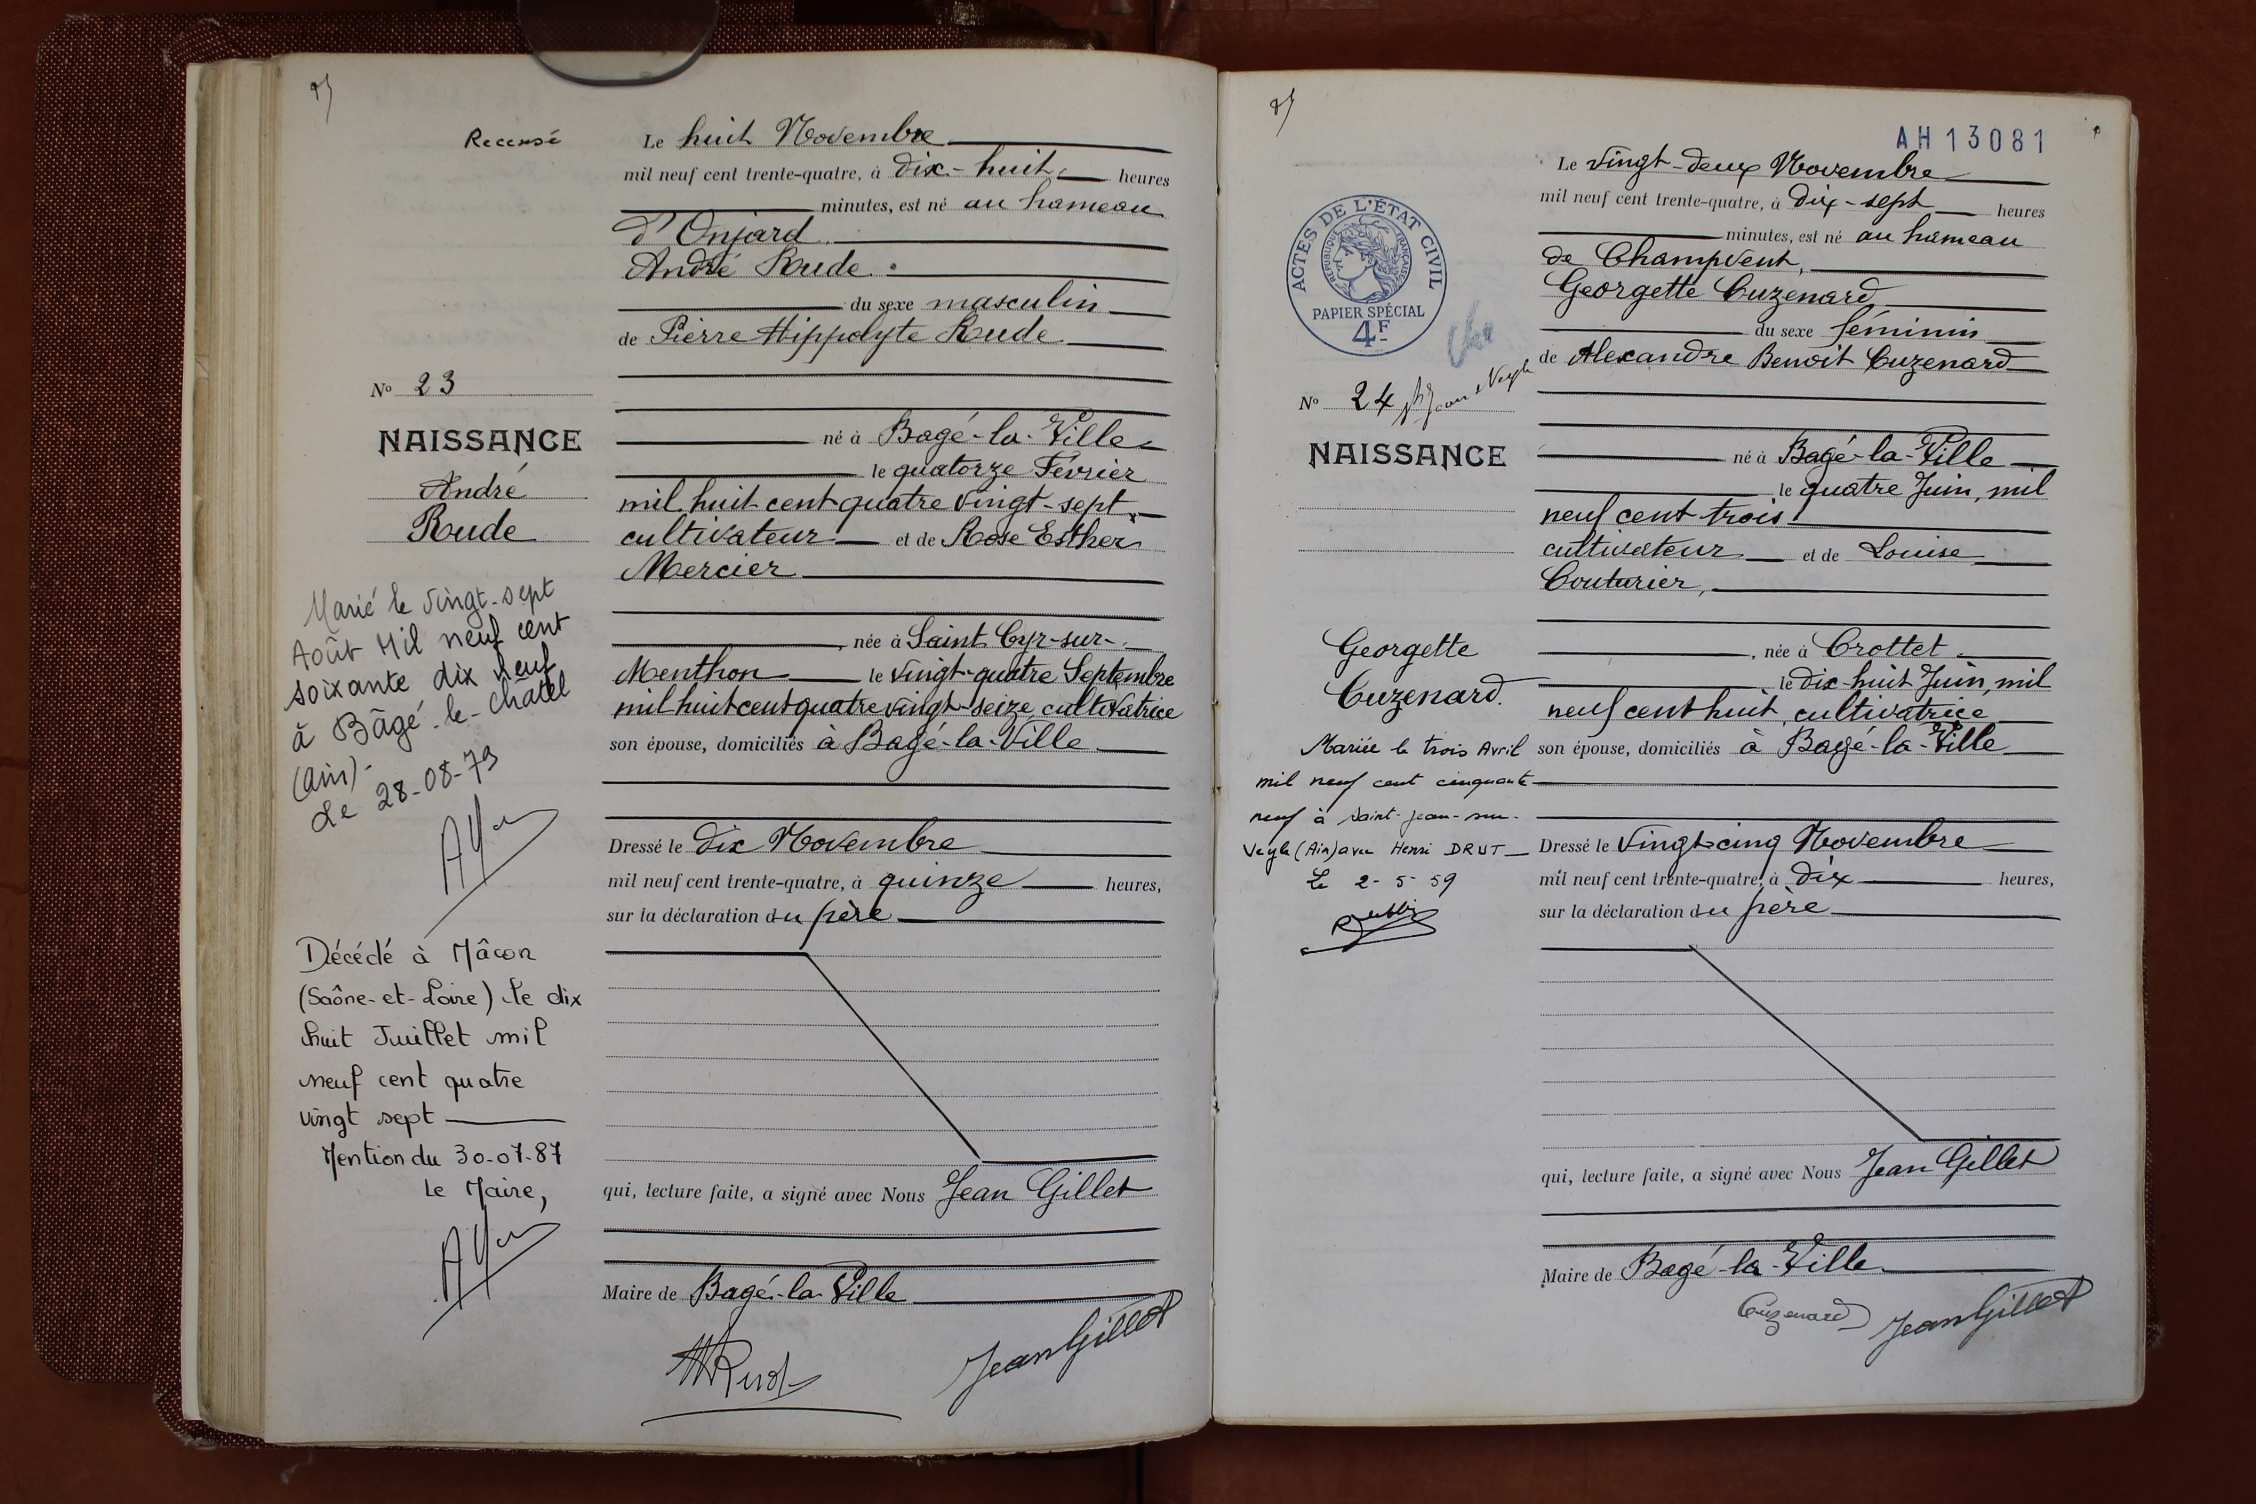 Recensé
Le huit Novembre
mil neuf cent trente-quatre, à dix-huit heures
minutes, est né au hameau
d'Onjard
André Rude
du sexe masculin
de Pierre Hippolyte Rude
né à Bagé-la-Ville
le quatorze Février
mil huit cent quatre vingt-sept,
cultivateur et de Rose Esther
Mercier
, née à Saint Cyr-sur-
Menthon le vingt-quatre Septembre
mil huit cent quatre vingt-seize, cultivatrice
son épouse, domiciliés à Bagé-la-Ville
Dressé le dix Novembre
mil neuf cent trente-quatre, à quinze heures,
sur la déclaration du père
qui, lecture faite, a signé avec Nous Jean Gillet
Maire de Bagé-la-Ville
Jean Gillet
No 23
NAISSANCE
André
Rude
Marié le vingt-sept
Août Mil neuf cent
soixante dix neuf
à Bâgé-le-Châtel
(Ain)-
Le 28-08-79
Décédé à Mâcon
(Saône-et-Loire) le dix
huit Juillet mil
neuf cent quatre
vingt sept
Mention du 30-07-87
Le Maire,
AH 13081
Le vingt-deux Novembre
mil neuf cent trente-quatre, à dix-sept heures
minutes, est né au hameau
de Champvent,
Georgette Cuzenard
du sexe féminin
de Alexandre Benoit Cuzenard
né à Bagé-la-Ville
le quatre Juin, mil
neuf cent trois
cultivateur et de Louise
Couturier,
, née à Crottet
le dix-huit Juin, mil
neuf cent huit, cultivatrice
son épouse, domiciliés à Bagé-la-Ville
Dressé le vingt-cinq Novembre
mil neuf cent trente-quatre, à dix heures,
sur la déclaration du père
qui, lecture faite, a signé avec Nous Jean Gillet
Maire de Bagé-la-Ville
Cuzenard Jean Gillet
ACTES DE L'ÉTAT CIVIL
RÉPUBLIQUE FRANÇAISE
PAPIER SPÉCIAL
4F
No 24 St Jean s Veyle
NAISSANCE
Georgette
Cuzenard.
Mariée le trois Avril
mil neuf cent cinquante
neuf à Saint-Jean-sur-
Veyle (Ain) avec Henri DRUT
Le 2-5-59